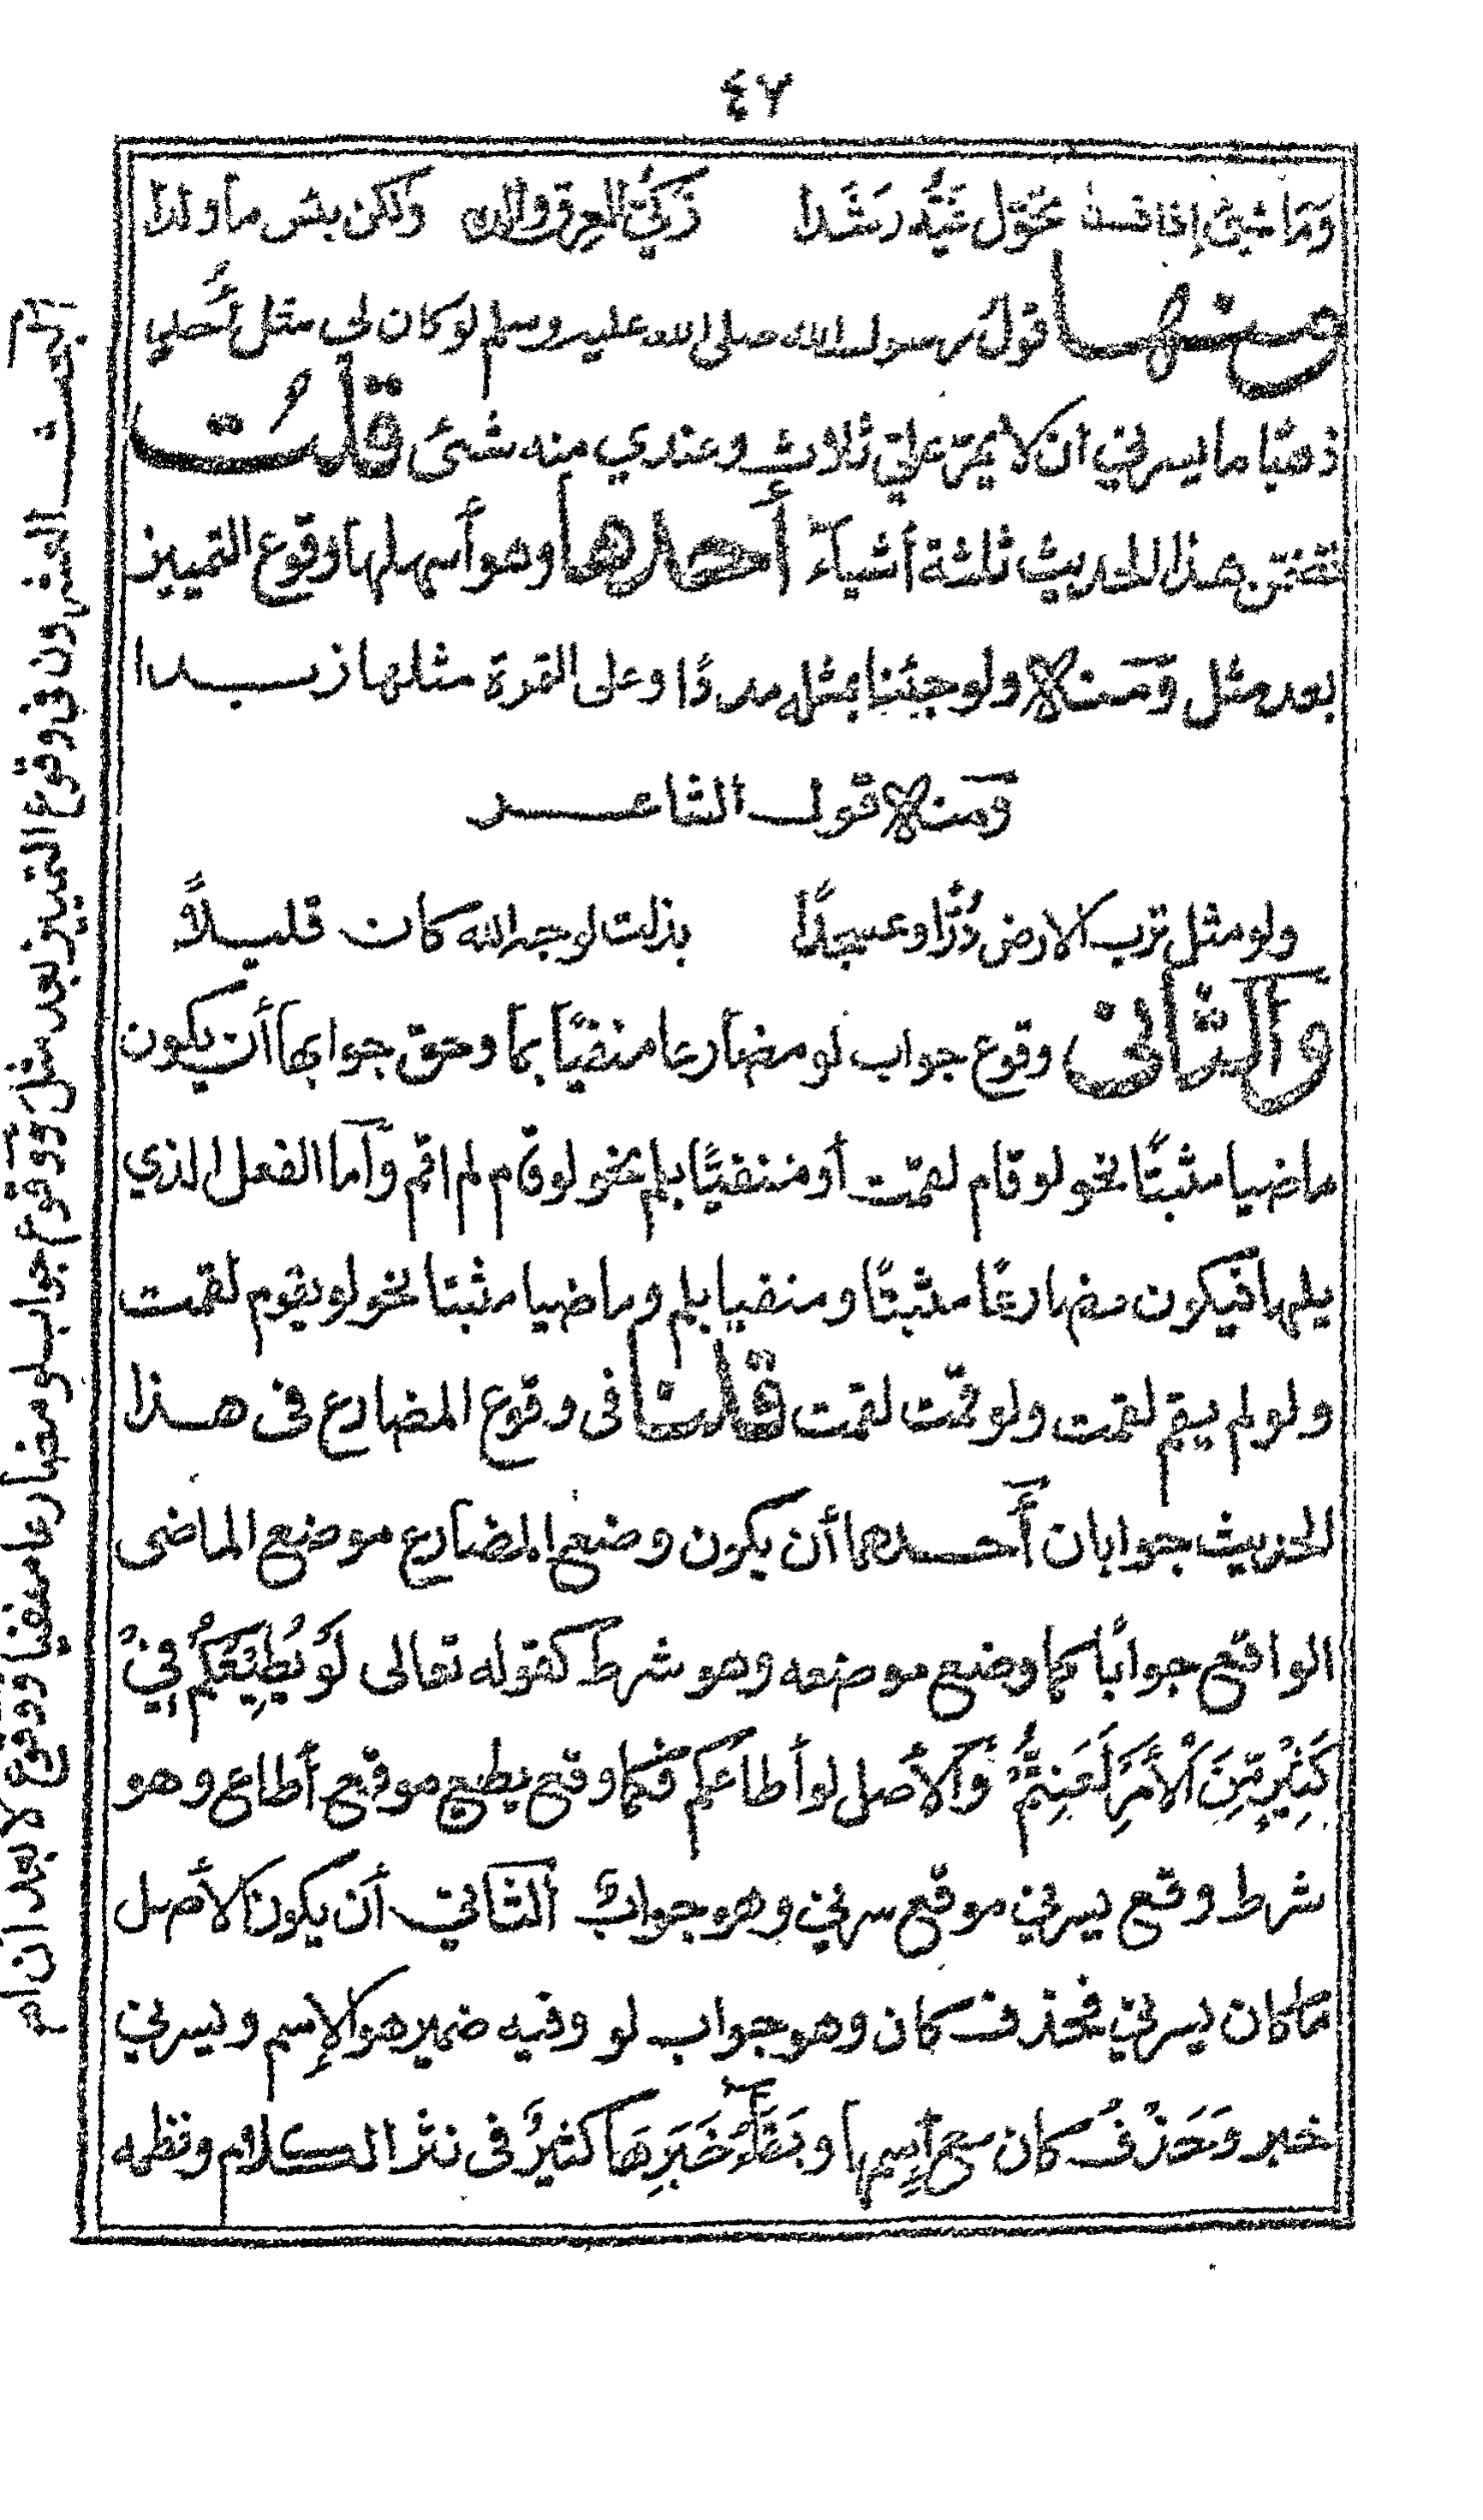 ٤٧
ومنها قول رسول الله صلى الله عليه وسلم لو كان لي مثل أُحد
ذهبًا ما يسرني ان لا يمرّ عليّ ثلاث وعندي منه شئ قلت
تضمّن هذا الحديث ثلثة أشيآء أحدها وهو أسهلها وقوع التمييز
بعد مثل ومنه ولو جئنا بمثله مددًا وعلى التمرة مثلها زبدا
ومنه قول الشاعر
ولو مثل ترب الارض دُرًّا وعسجدًا بذلت لوجه الله كان قليلاً
والثاني وقوع جواب لو مضارعا منفيًا بما وحق جوابها أن يكون
ماضيا مثبتًا نحو لو قام لقمت أو منفيًا بلم نحو لو قام لم اقم وأما الفعل الذي
يليها فيكون مضارعًا مثبتًا ومنفيا بلم وماضيا مثبتا نحو لو يقوم لقمت
ولو لم يقم لقمت ولو قمت لقمت قلنا في وقوع المضارع في هذا
الحديث جوابان أحدهما أن يكون وضع المضارع موضع الماضى
الواقع جوابًا كما وضع موضعه وهو شرط كقوله تعالى لَوْ يُطِيْعُكُمْ فِيْ
كَثِيْرٍ مِّنَ الْأَمْرِ لَعَنِتُّمْ وَالأصل لو أطاعكم فكما وقع يطيع موقع أطاع وهو
شرط وقع يسرني موقع سرني وهو جواب الثاني أن يكون الأصل
ما كان يسرني فحذف كان وهو جواب لو وفيه ضمير هو الإسم ويسرني
خبر وَحَذْفُ كان مع اسمها وبَقَاءُ خَبَرِهَا كثيرٌ في نثر الكلام ونظمه
العشرون في وقوع التمييز بعد مثل ووقوع جواب لو مضارعا منفيا ووقوع لا بعد ان ام